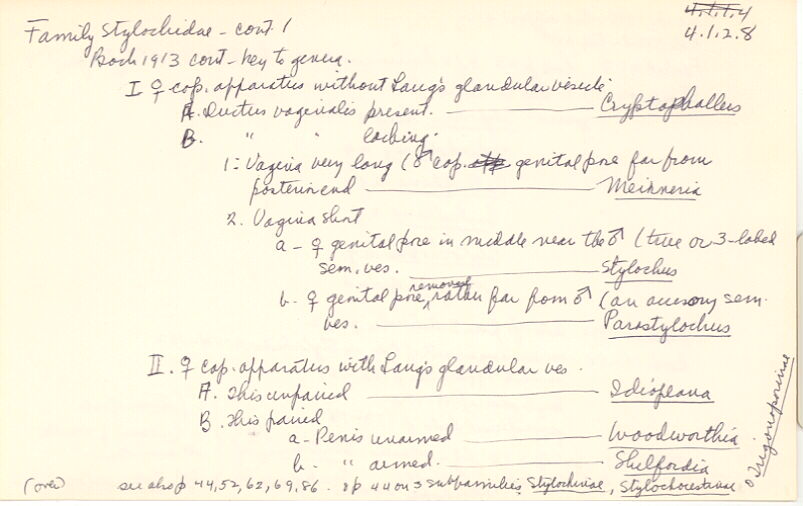 4.1.1.4
Family Stylochidae - cont. 1
4.1.2.8
Bock 1913 cont - key to genera.
I ♀ cop. apparatus without Lang's glandular vesicle
A. Ductus vaginalis present. Cryptophallus
B. " " lacking.
1. Vagina very long (♂ cop. app genital pore far from
posterior end Meixneria
2. Vagina short
a - ♀ genital pore in middle near the ♂ (true or 3-lobed
sem. ves. Stylochus
b. ♀ genital pore, removed rather far from ♂ (an accessory sem.
ves. Parastylochus
II. ♀ cop. apparatus with Lang's glandular ves.
A. This unpaired Idioplana
B. This paired
a - Penis unarmed Woodworthia
b. " armed. Shelfordia
(over) see also p 44, 52, 62, 69, 86. p 44 on 3 subfamilies, Stylochinae, Stylochocestinae
Trigonoporinae